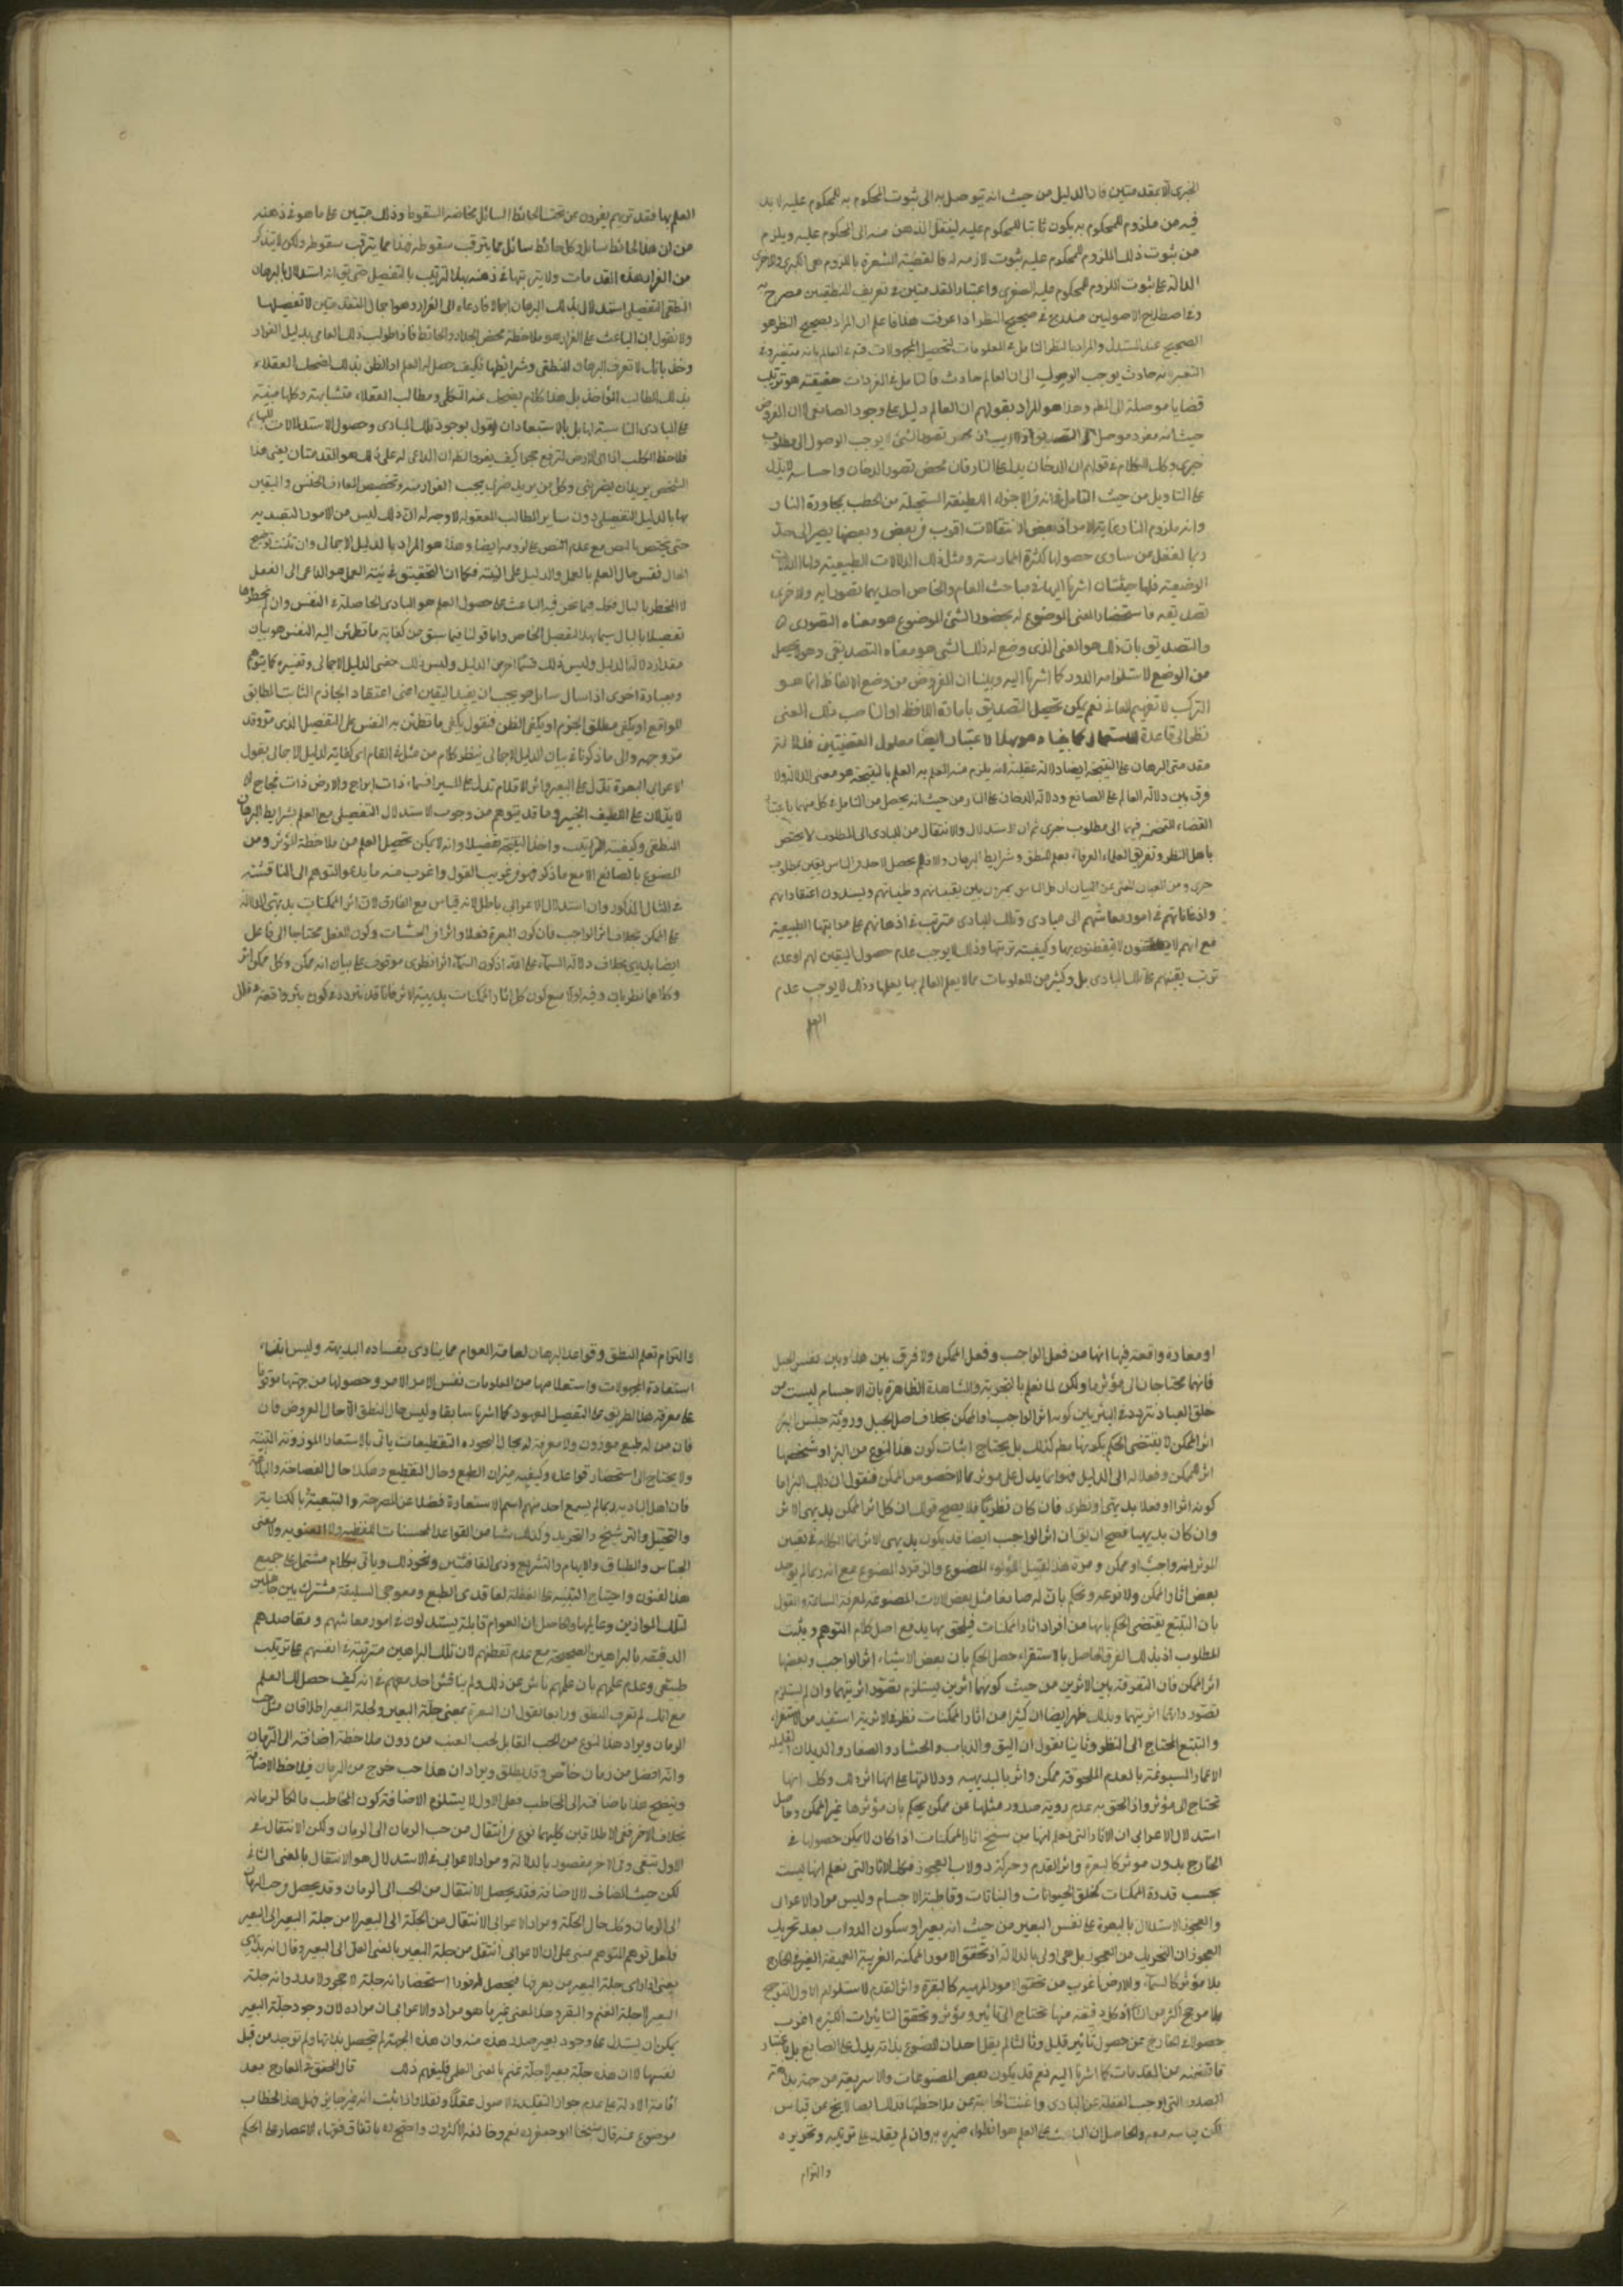 الخبرى الا بمقدمتين فان الدليل من حيث انه يتوصل به الى ثبوت المحكوم به للمحكوم عليه لا بد
فيه من ملزوم للمحكوم به يكون ثابتا للمحكوم عليه لينتقل الذهن منه الى المحكوم عليه ويلزم
من ثبوت ذلك الملزوم للمحكوم عليه ثبوت لازمه له فالقضية المشعرة باللزوم هى الكبرى والاخرى
الدالة على ثبوت الملزوم للمحكوم عليه الصغرى واعتبار المقدمتين فى تعريف المنطقيين مصرح به
وفى اصطلاح الاصوليين مندرج فى صحيح النظر اذا عرفت هذا فاعلم ان المراد بصحيح النظر هو
الصحيح عند المستدل والمراد بالنظر التأمل فى المعلومات لتحصيل المجهولات
حادث يوجب الوصول الى ان العالم حادث فالتأمل فى المفردات حقيقة هو ترتيب
قضايا موصلة الى العلم وهذا هو المراد بقولهم ان العالم دليل على وجود الصانع
حيث انه مفرد موصل الى التصديق
خبرى وكك الكلام فى قولهم ان الدخان يدل على النار فان محض تصور الدخان واحساسه لا يدل
على النار بل من حيث التأمل فى انه من الاجزاء اللطيفة المستحيلة من الحطب بمجاورة النار
وانه ملزوم النار
ربما يغفل عن مبادى حصولها لكثرة الممارسة ومثل ذلك الدلالات الطبيعية واما الدلالات
الوضعية فلها حيثيتان اشرنا اليهما فى مباحث العام والخاص احديهما تصورية والاخرى
تصديقية فاستحضار المعنى الموضوع له بحضور الشئ الموضوع هو معناه التصورى
والتصديق بان ذلك هو المعنى الذى وضع له ذلك الشئ هو معناه التصديقى وهو يحصل
من الوضع لاستلزامه الدور كما اشرنا اليه وبينا ان الغرض من وضع الالفاظ انما هو
التركيب لا تفهيم المعانى نعم يمكن تحصيل التصديق بارادة اللافظ
نظرا الى قاعدة الاستعمال
مقدمتى البرهان على النتيجة ايضا دلالة عقلية لانه يلزم منه العلم به العلم بالنتيجة هو معنى الدلالة ولا
فرق بين دلالة العالم على الصانع ودلالة الدخان على النار من حيث انه يحصل من التأمل فى كل منهما
القضاء المتضمنة فيهما الى مطلوب خبرى ثم ان الاستدلال والانتقال من المبادى الى المطلوب لا يختص
باهل النظر وتفريق العلماء العرفاء بعلم المنطق وشرايط البرهان والا فلم يحصل لاحد من الناس يقين بمطلوب
خبرى ومن العيان المغنى عن البيان ان كل الناس يميزون بين يقينياتهم وظنياتهم ويسندون اعتقاداتهم
واذعاناتهم فى امور معاشهم الى مبادى وتلك المبادى مترتب فى اذهانهم على مراتبها الطبيعية
مع انهم لا يتفطنون بها وكيفية ترتيبها وذلك لا يوجب عدم حصول اليقين لهم او عدم
ترتب يقينهم على تلك المبادى بل وكثير من المعلومات مما لا يعلم العالم بها يعلمها وذلك لا يوجب عدم
العلم
العلم بها فقد تريهم يفرون من تحت الحائط المايل مخافة السقوط وذلك مبتن على ما هو فى ذهنه
من ان هذا الحائط مايل وكل حائط مايل مما يترقب سقوطه فهذا مما يترقب سقوطه ولكن لا يتذكر
من الفرار هذه المقدمات ولا يترتبها فى ذهنه بهذا الترتيب بالتفصيل حتى يق انه استدلال بالبرهان
المنطقى التفصيلى استدلال بذلك البرهان اجمالا فادعاه الى الفرار وهو اجمال المقدمتين لا تفصيلها
ولا تقول ان الباعث على الفرار هو ملاحظة محض الجدار والحائط
وتخذ بانك لا تعرف البرهان المنطقى وشرائطها فكيف حصل لك العلم او الظن بذلك لضحك العقلاء
على المبادى المناسبة لها بل بالاستبعاد ان يقول بوجود تلك المبادى وحصول الاستدلالات
فلاحظ الكلب اذا الى الارض لترفع حجرا كيف يفر وانظر ان الداعى له على ذلك هو المقدمتان يعنى هذا
الشخص يريد ان يضربنى وكل من يريد ضربى يجب الفرار منه
بها بالدليل التفصيلى دون ساير المطالب المعقولة لا وجه له
حتى يختص بالنص مع عدم النص على لزومه ايضا وهذا هو المراد بالدليل الاجمالى وان شئت توضيح
الحال فقس حال العلم بالعمل والدليل على النية فكما ان التحقيق فى نية العمل هو الداعى الى الفعل
لا المخطر بالبال فكك فيما نحن فيه الباعث على حصول العلم هو المبادى الحاصلة فى النفس وان لم يخطرها
تفصيلا بالبال سيما بهذا التفصيل الخاص واما قولنا فيما سبق من كفاية ما تطمئن اليه النفس هو بيان
مقدار دلالة الدليل وليس ذلك قسما اخر من الدليل وليس ذلك معنى الدليل الاجمالى وتفسيره كما يتوهم
وبعبارة اخرى اذا سال سايل هو يجب ان يفيد اليقين اعنى اعتقاد الجازم الثابت المطابق
للواقع او يكفى مطلق الجزم او يكفى الظن فنقول يكفى ما تطمئن به النفس على التفصيل الذى
والى ما ذكرنا فى بيان الدليل الاجمالى ينظر كلام من مثل فى المقام اى كفاية الدليل الاجمالى بقول
الاعرابى البعرة تدل على البعير واثر الاقدام تدل على المسير افسماء ذات ابراج والارض ذات فجاج
لا يدلان على اللطيف الخبير وما قد يتوهم من وجوب الاستدلال التفصيلى مع العلم بشرايط البرهان
المنطقى وكيفية الترتيب واخذ النتيجة تفصيلا وانه لا يمكن تحصيل العلم من ملاحظة المؤثر ومن
المصنوع بالصانع الا مع ما ذكر فهو من غريب القول واغرب منه ما يدعو المتوهم الى المناقشة
فى المثال المذكور وان استدلال الاعرابى باطل لانه قياس مع الفارق لان اثر الممكنات بديهى الدلالة
على الممكن بخلاف اثر الواجب فان كون البعرة فعلا واثرا من الحسيات وكون الفعل محتاجا الى فاعل
ايضا بديهى بخلاف دلالة السماء على الله اذ كون السماء اثرا نظرى موقوف على بيان انه ممكن وكل ممكن اثر
وكلاهما نظريان وفيه اولا منع كون كل اثار الممكنات بديهية الاثر فانا قد نتردد فى كون بئر واقعة
او مغارة واقعة فيها انها من فعل الواجب وفعل الممكن ولا فرق بين هذا وبين نفس الجبل
فانهما محتاجان الى مؤثر ما ولكن لما نعلم بالتجربة والمشاهدة الظاهرة بان الاجسام ليست من
خلق العباد نتردد فى البئر بين كونه اثر الواجب او الممكن بخلاف اصل الجبل ورؤية جنس البئر
اثر الممكن لا يقتضى الحكم بكونها مطم كذلك بل يحتاج اثبات كون هذا النوع من البئر او شخصها
اثر الممكن وفعلا له الى الدليل
كونه اثرا وفعلا بديهى او نظرى فان كان نظريا فلا يصح قولك ان كل اثر الممكن بديهى الاثر
وان كان بديهيا فيصح ان يق ان اثر الواجب ايضا قد يكون بديهى الاثر انما الكلام فى تعيين
المؤثر انه واجب او ممكن
بعض اثار الممكن ولا نوعه ونحكم بان له صانعا مثل بعض الالات المصنوعة لمعرفة الساعة والقول
بان التتبع يقتضى الحكم بانها من افراد اثار الممكنات فيلحق بها يدفع اصل كلام المتوهم ويثبت
المطلوب اذ بذلك الفرق الحاصل بالاستقراء حصل الحكم بان بعض الاشياء اثر الواجب وبعضها
اثر الممكن فان التفرقة بين الاثرين من حيث كونهما اثرين يستلزم تصور اثريتهما وان لم يستلزم
تصور دايما اثريتهما وبذلك ظهر ايضا ان كثيرا من اثار الممكنات نظرية الاثرية استفيد من الاستقراء
والتتبع المحتاج الى النظر وثانيا نقول ان البق والذباب والحشار والصغار والديدان القليلة
الاعمار المسبوقة بالعدم الملحوقة ممكن واثر بالبديهة ودلالتها على انها اثر ذلك وكل انها
تحتاج الى مؤثر واذا الحق به عدم روية صدور مثلها عن ممكن يحكم بان مؤثرها غير الممكن وحاصل
استدلال الاعرابى ان الاثار التى نعلم انها من سنخ اثار الممكنات اذا كان لا يمكن حصولها فى
الخارج بدون مؤثر كالبعرة واثر القدم وحركة دولاب العجوز فكك الاثار التى نعلم انها ليست
بحسب قدرة الممكنات كخلق الحيوانات والنباتات وقاطبة الاجسام وليس مراد الاعرابى
والعجوز الاستدلال بالبعرة على نفس البعير من حيث انه بعير او سكون الدولاب بعد تحريك
العجوز ان التحريك من العجوز بل هى اولى بالدلالة
بلا مؤثر كالسماء والارض اغرب من تحقق الامور المريبة كالبعرة واثر القدم لاستلزام الاول الترجيح
بلا مرجح اكثر من الثانى اذ كل دقيقة منها تحتاج الى تاثير ومؤثر وتحقق التاثيرات الكثيرة اغرب
حصولا فى الخارج من حصول تاثير قليل وثالثا لم يقل احد ان المصنوع بذاته يدل على الصانع بل باعتبار
ما تضمنه من المقدمات كما اشرنا اليه نعم قد يكون بعض المصنوعات
المبادى واغنت الحاجة عن ملاحظتها فذلك ايضا لا يخرج عن قياس
لكن قياسه معه والحاصل ان الباعث على العلم هو انطواء ضميره به وان لم يقدر على ترتيبه وتحريره
والتزام
والتزام تعلم المنطق وقواعد البرهان لعامة العوام مما ينادى بفساده البديهة وليس
استفادة المجهولات واستعلامها من المعلومات نفس الامر الامر وحصولها من جهتها موقوفا
على معرفة هذا الطريق على التفصيل المعهود كما اشرنا سابقا وليس حال المنطق الا حال العروض فان
فان من له طبع موزون ولا معرفة له بحال البحور و التقطيعات ياتى بالاشعار الموزونة
ولا يحتاج الى استحضار قواعد وكيفية ميزان الطبع وحال التقطيع وهكذا حال الفصاحة والبلاغة
فان اهل البادية ربما لم يسمع احد منهم اسم الاستعارة فضلا عن المصرحة والتبعية بالكناية
والتخييل والترشيح والتجريد وكذلك شيئا من القواعد المحسنات اللفظية والمعنوية ولا معنى
الجناس والطباق والايهام والتشريع وذى القافيتين ونحو ذلك وياتى بكلام مشتمل على جميع
هذا الفنون واحتياج التنبيه على الغفلة لفاقدى الطبع ومعوجى السليقة مشترك بين جاهلين
لتلك الموازين وعالميها والحاصل ان العوام قابلة يستدلون فى امور معاشهم ومقاصدهم
الدقيقة بالبراهين الصحيحة مع عدم تفطنهم لان تلك البراهين مترتبة فى انفسهم على ترتيب
طبيعى وعدم علمهم بان علمهم ناش عن ذلك ولم يناقش احد معهم فى انه كيف حصل لك العلم
مع انك لم تعرف المنطق ورابعا نقول ان البعرة بمعنى جلة البعير ولجلة البعير اطلاقان مثل حب
الرمان ويراد هذا النوع من الحب القابل لحب العنب من دون ملاحظة اضافته الى الرمان
وانه افضل من رمان خاص وقد يطلق ويراد ان هذا حب خرج من الرمان فيلاحظ الاضافة
ويتضح هذا باضافته الى المخاطب فعلى الاول لا يستلزم الاضافة كون المخاطب مالكا لرمانه
بخلاف الاخر ففى الاطلاقين كليهما نوع من انتقال من حب الرمان الى الرمان ولكن الانتقال فى
الاول تبعى وفى الاخر مقصود بالدلالة ومراد الاعرابى فى الاستدلال هو الانتقال بالمعنى الثانى
لكن حيث المضاف لا الاضافة فقد يحصل الانتقال من الحب الى الرمان وقد يحصل من حب الرمان
الى الرمان وكك حال الجلة ومراد الاعرابى الانتقال من الجلة الى البعير لا من جلة البعير الى البعير
ولعل توهم المتوهم مبنى على ان الاعرابى انتقل من جلة البعير بالمعنى الثانى الى البعير وقال انه بديهى
يعنى اذا راى جلة البعير من يعرفها فيحصل له فورا استحضار انه جلة لا حجر ولا مدر وانه جلة
البعير لا جلة الغنم والبقر وهذا المعنى غير ما هو مراد الاعرابى ان مراده لان وجود جلة البعير
يمكن ان يستدل على وجود بعير صدر هذه منه وان هذه الجهة لم تحصل بذاتها ولم توجد من قبل
نفسها لا ان هذه جلة بعير لا جلة غنم بالمعنى العلمى فليفهم ذلك قال المحقق فى المعارج بعد
اقامة الادلة على عدم جواز التقليد فى الاصول عقلا ونقلا واذا ثبت انه غير جايز فهل هذا الخطاء
موضوع عنه قال شيخنا ابو جعفر ره نعم وخالفه الاكثرون واحتج له باتفاق فقهاء الاعصار على الحكم